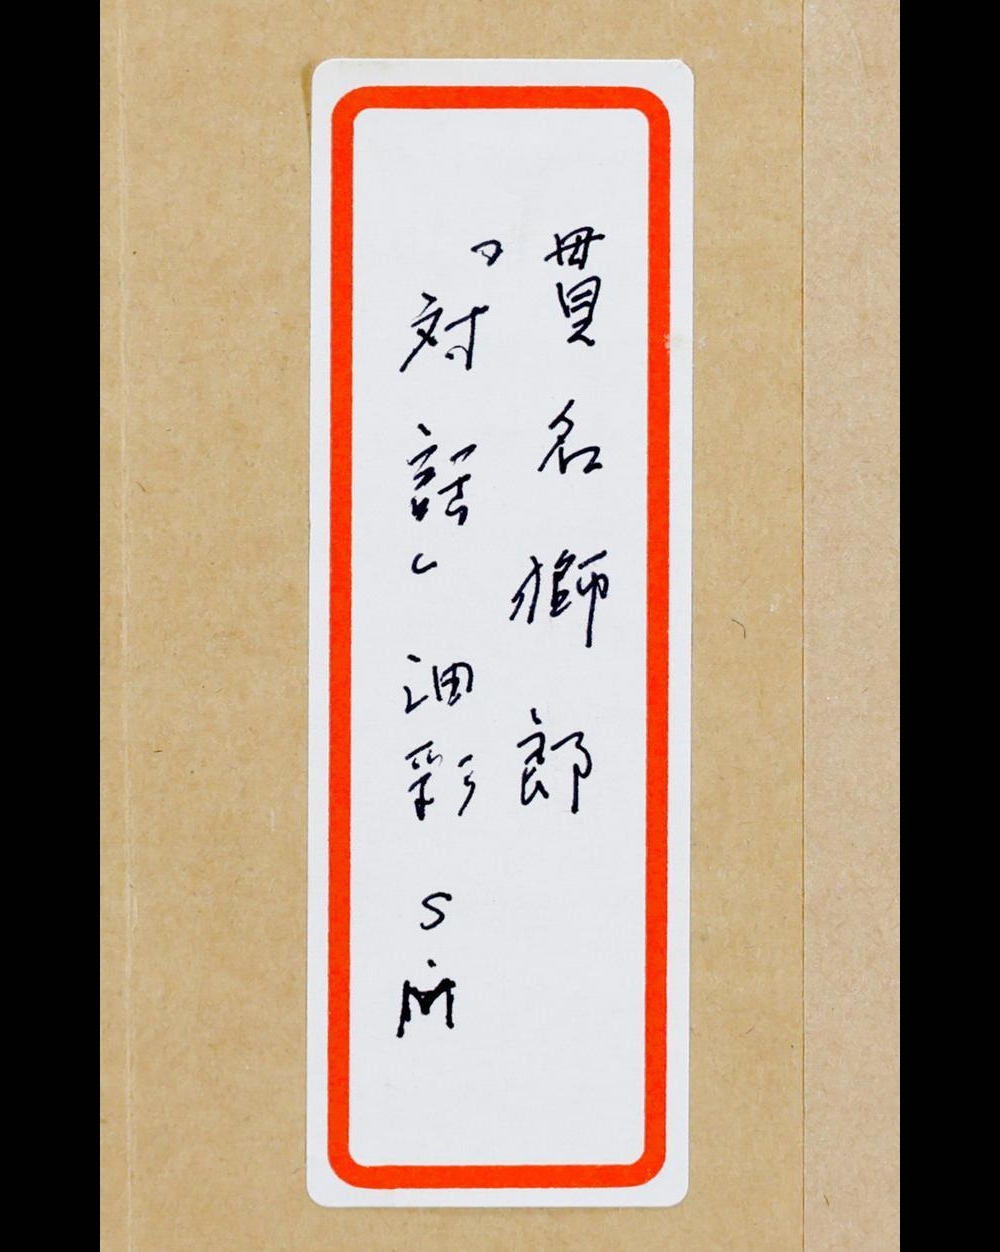 貫名獅郎
「対話」油彩 S